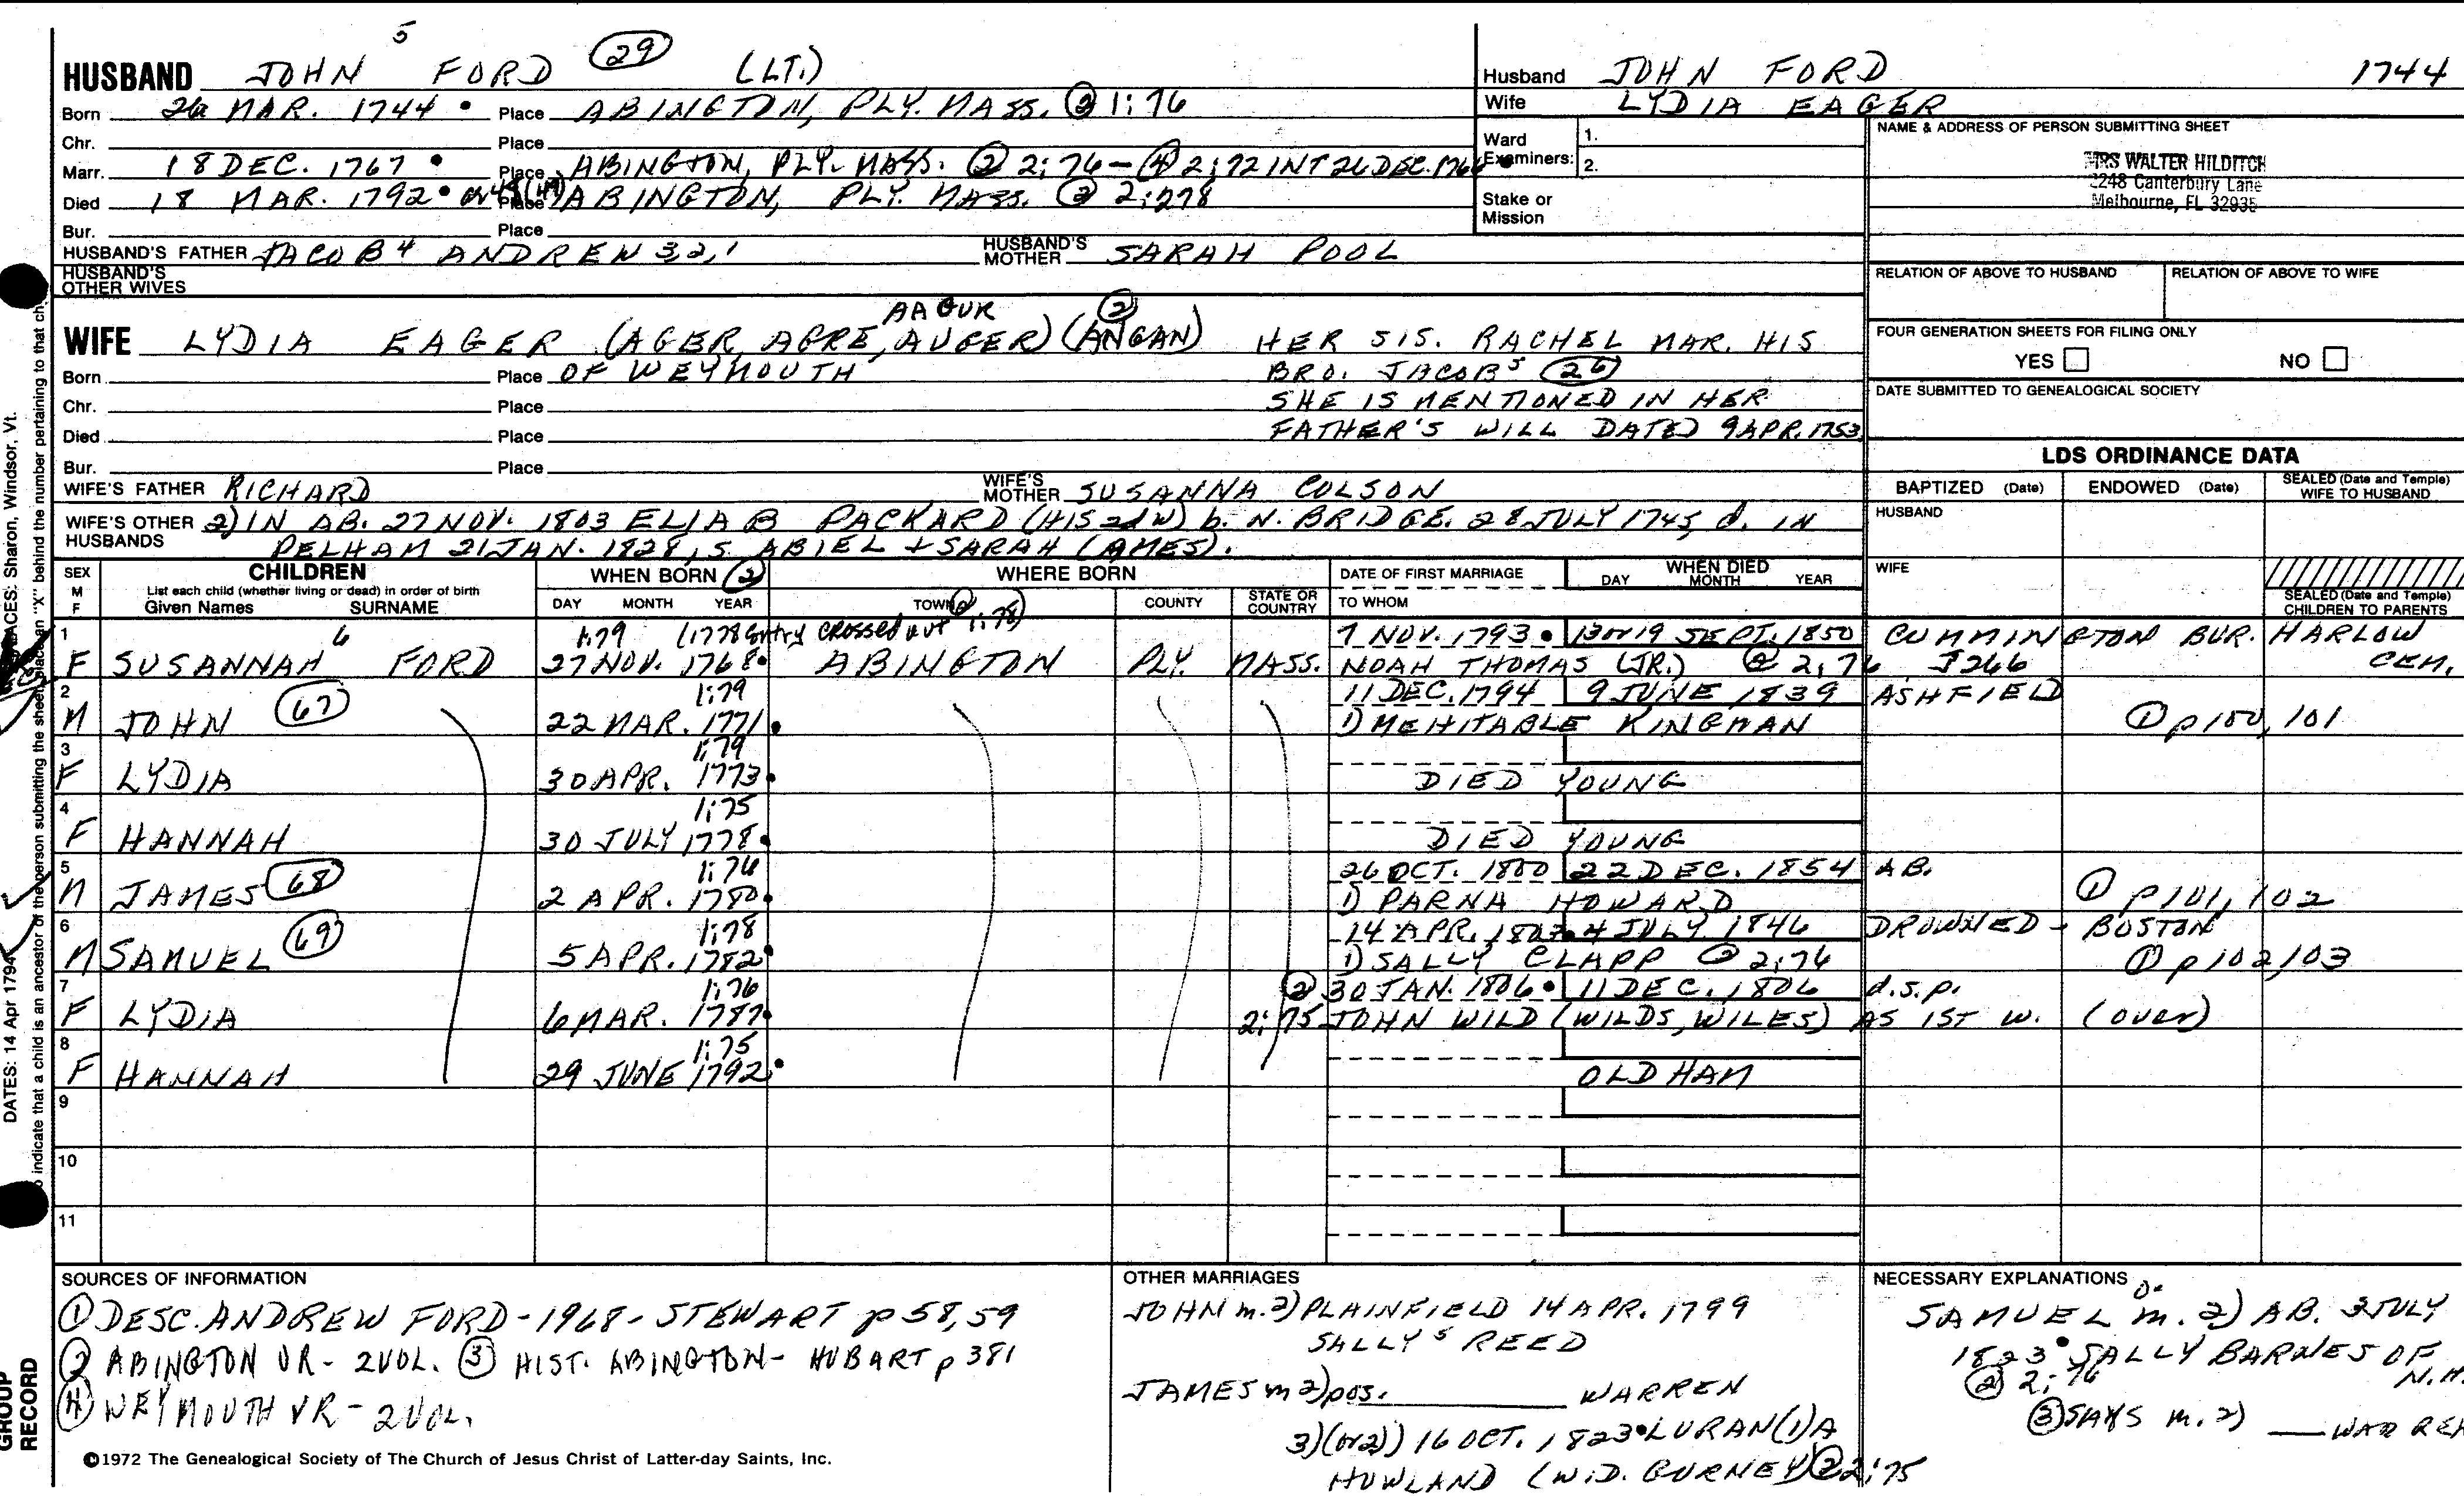 5
HUSBAND JOHN FORD (29) (LT.)
Born 26 MAR. 1744 • Place ABINGTON, PLY. MASS. ② 1:76
Chr. Place
Marr. 18 DEC. 1767 • Place ABINGTON, PLY. MASS. ② 2:76 — ④ 2:72 INT 26 DEC. 1766 •
Died 18 MAR. 1792 • or 48 (49) Place ABINGTON, PLY. MASS. ② 2:278
Bur. Place
HUSBAND'S FATHER JACOB 4 ANDREW 3,2,1 HUSBAND'S MOTHER SARAH POOL
HUSBAND'S OTHER WIVES
Husband JOHN FORD 1744
Wife LYDIA EAGER
Ward Examiners: 1.
2.
Stake or Mission
NAME & ADDRESS OF PERSON SUBMITTING SHEET
MRS WALTER HILDITCH
2248 Canterbury Lane
Melbourne, FL 32935
RELATION OF ABOVE TO HUSBAND RELATION OF ABOVE TO WIFE
FOUR GENERATION SHEETS FOR FILING ONLY
YES NO
DATE SUBMITTED TO GENEALOGICAL SOCIETY
AAGUR ②
WIFE LYDIA EAGER (AGER, AGRE, AUGER) (ANGAN) HER SIS. RACHEL MAR. HIS
Born Place OF WEYMOUTH BRO. JACOB 5 (26)
Chr. Place SHE IS MENTIONED IN HER
Died Place FATHER'S WILL DATED 9 APR. 1753
Bur. Place
WIFE'S FATHER RICHARD WIFE'S MOTHER SUSANNA COLSON
WIFE'S OTHER HUSBANDS 2) IN AB. 27 NOV. 1803 ELIAB PACKARD (HIS 2d W) b. N. BRIDGE. 28 JULY 1745, d. IN
PELHAM 21 JAN. 1828, S. ABIEL + SARAH (AMES).
LDS ORDINANCE DATA
BAPTIZED (Date) ENDOWED (Date) SEALED (Date and Temple) WIFE TO HUSBAND
HUSBAND
WIFE
SEALED (Date and Temple) CHILDREN TO PARENTS
SEX M F CHILDREN List each child (whether living or dead) in order of birth Given Names SURNAME
WHEN BORN ② DAY MONTH YEAR
WHERE BORN TOWN COUNTY STATE OR COUNTRY
DATE OF FIRST MARRIAGE TO WHOM
WHEN DIED DAY MONTH YEAR
1 6 1:79 (1778 Entry crossed out ② 1:78) 7 NOV. 1793 • 13 or 19 SEPT. 1850 CUMMINGTON BUR. HARLOW
F SUSANNAH FORD 27 NOV. 1768 • ABINGTON PLY. MASS. NOAH THOMAS (JR.) ② 2:76 J266 CEM.
2 1:79 11 DEC. 1794 9 JUNE 1839 ASHFIELD
M JOHN (67) 22 MAR. 1771 • 1) MEHITABLE KINGMAN ① p100, 101
3 1:79
F LYDIA 30 APR. 1773 • DIED YOUNG
4 1:75
F HANNAH 30 JULY 1778 • DIED YOUNG
5 1:76 26 OCT. 1800 22 DEC. 1854 AB.
M JAMES (68) 2 APR. 1780 • 1) PARNA HOWARD ① p101, 102
6 1:78 14 APR. 1803 • 4 JULY 1846 DROWNED - BOSTON
M SAMUEL (69) 5 APR. 1782 • 1) SALLY CLAPP ② 2:76 ① p102, 103
7 1:76 ② 30 JAN. 1806 • 11 DEC. 1806 d.s.p.
F LYDIA 6 MAR. 1787 • 2:75 JOHN WILD (WILDS, WILES) AS 1ST W. (over)
8 1:75
F HANNAH 29 JUNE 1792 • OLDHAM
9
10
11
SOURCES OF INFORMATION
① DESC. ANDREW FORD - 1968 - STEWART p 58, 59
② ABINGTON VR - 2 VOL. ③ HIST. ABINGTON - HOBART p 381
④ WEYMOUTH VR - 2 VOL.
OTHER MARRIAGES
JOHN m. 2) PLAINFIELD 14 APR. 1799
SALLY 5 REED
JAMES m 2) pos. WARREN
3) (or 2)) 16 OCT. 1823 • LURAN(I)A
HOWLAND (WID. GURNEY) ② 2:75
NECESSARY EXPLANATIONS
SAMUEL m. 2) AB. 3 JULY
1823 • SALLY BARNES OF
② 2:76 N.H.
③ SAYS m. 2) WARREN
©1972 The Genealogical Society of The Church of Jesus Christ of Latter-day Saints, Inc.
GROUP RECORD
DATES: 14 Apr 1794
ACES: Sharon, Windsor, Vt.
o indicate that a child is an ancestor of the person submitting the sheet, place an "X" behind the number pertaining to that ch